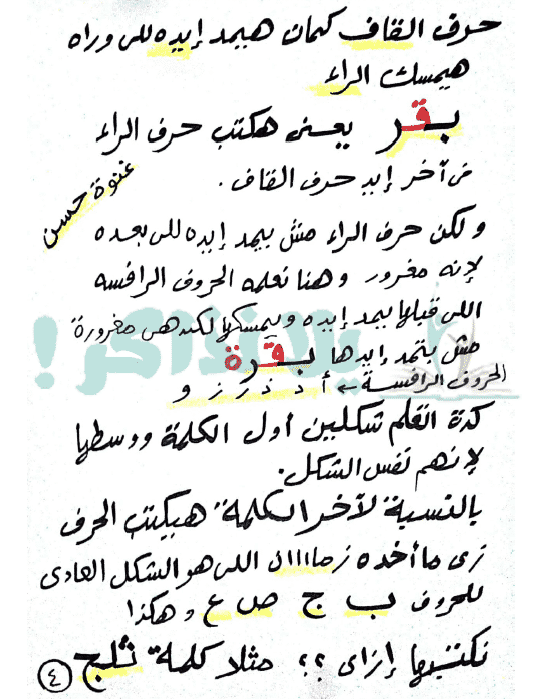 حرف القاف كمان هيمد إيده للى وراه
هيمسك الراء
بقر يعنى هكتب حرف الراء
فى آخر إيد حرف القاف .
غنوة حسن
ولكن حرف الراء مش بيمد إيده للى بعده
لإنه مغرور وهنا نعلمه الحروف الرافسه
اللى قبلها بيمد إيده ويمسكها لكن هى مغرورة
مش بتمد إيدها بقرة
يلا نذاكر!
الحروف الرافسة ← أ د ذ ر ز و
كدة اتعلم شكلين أول الكلمة ووسطها
لإنهم نفس الشكل.
بالنسبة لآخر الكلمة هيكتب الحرف
زى ما أخده زمااااان اللى هو الشكل العادى
للحروف ب ج ص ع وهكذا
نكتبها إزاى ؟؟ مثلا كلمة ثلج
٤